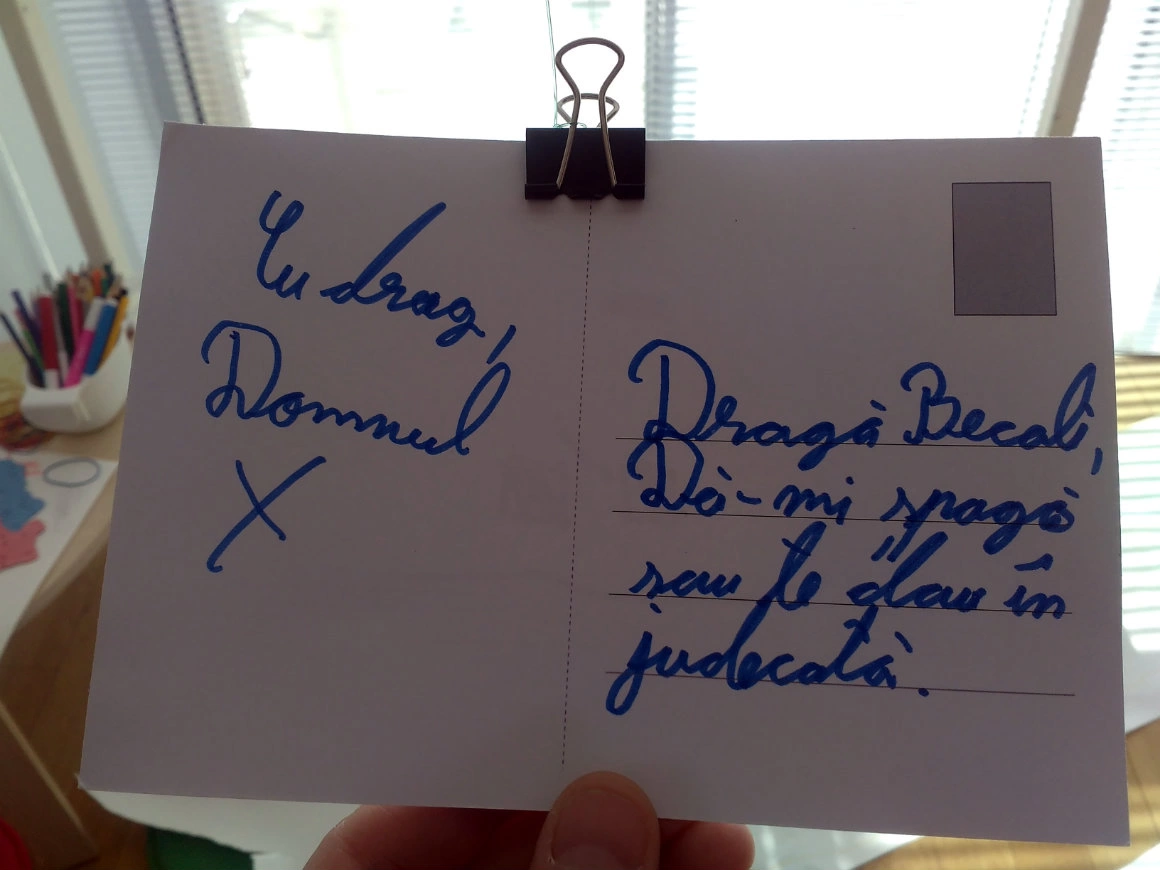 Cu drag,
Domnul
X
Dragă Becali,
Dă-mi șpagă
sau te dau în
judecată.